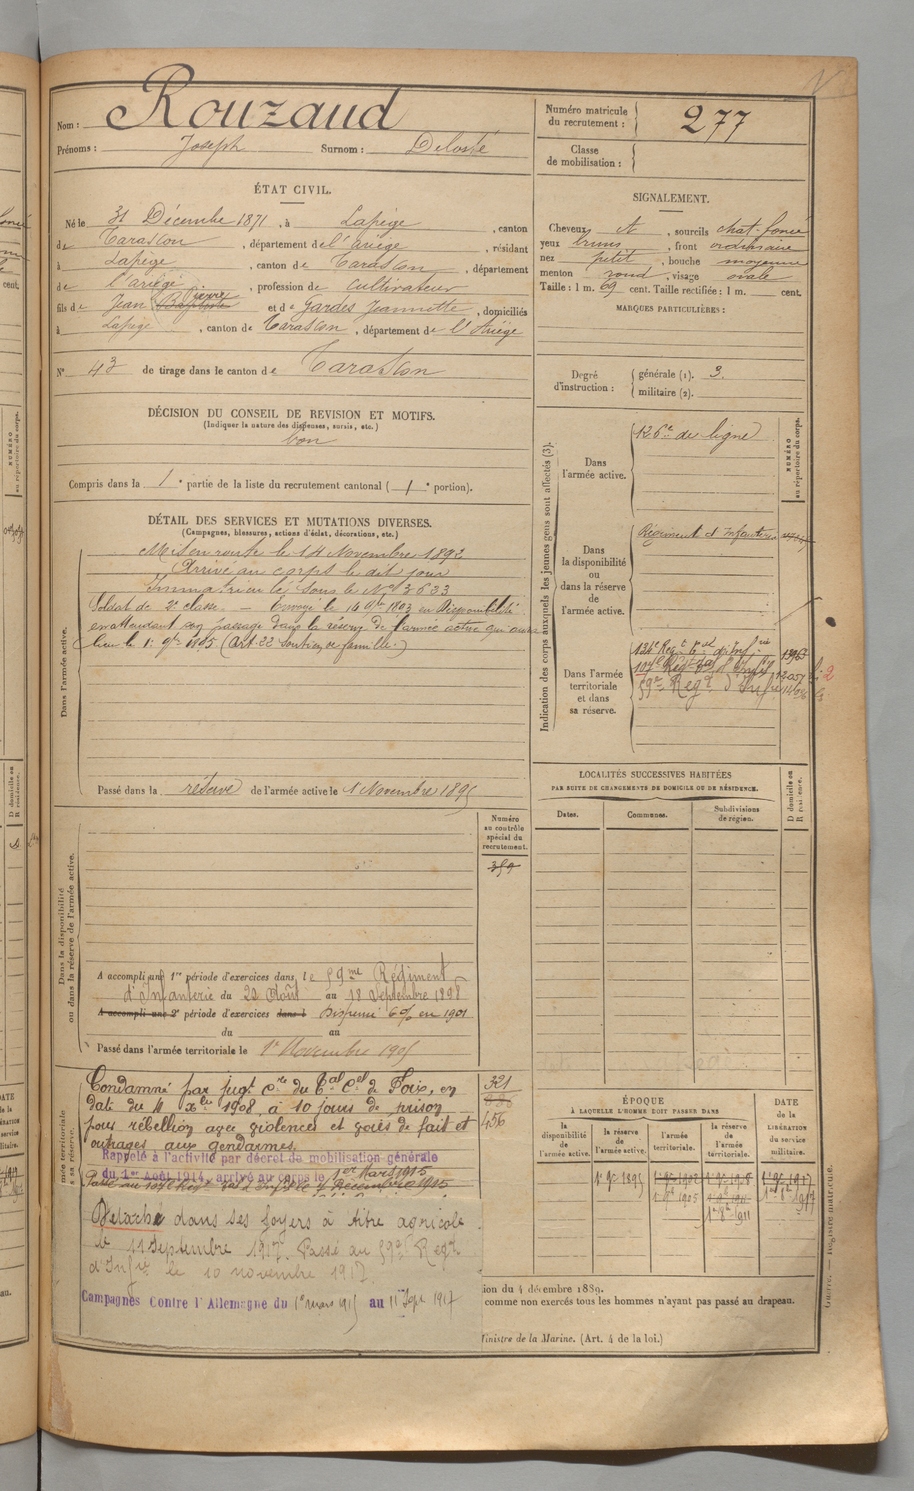 Nom : Rouzaud
Prénoms : Joseph Surnom :
Numéro matricule
du recrutement : 277
Classe
de mobilisation :
ÉTAT CIVIL.
Né le 31 Décembre 1871, à Lapège, canton
de Tarascon, département de l'Ariège, résidant
à Lapège, canton de Tarascon, département
de l'ariège, profession de cultivateur
fils de Jean Baptiste pierre et de Gardes Jeannette, domiciliés
à Lapège, canton de Tarascon, département de l'Ariège
N° 43 de tirage dans le canton de Tarascon
DÉCISION DU CONSEIL DE REVISION ET MOTIFS.
(Indiquer la nature des dispenses, sursis, etc.)
bon
Compris dans la 1e partie de la liste du recrutement cantonal (1e portion).
SIGNALEMENT.
Cheveux et, sourcils chat. foncé
yeux bruns, front ordinaire
nez petit, bouche moyenne
menton rond, visage ovale
Taille : 1 m. 69 cent. Taille rectifiée : 1 m. cent.
MARQUES PARTICULIÈRES :
Degré
d'instruction :
générale (1). 3.
militaire (2).
DÉTAIL DES SERVICES ET MUTATIONS DIVERSES.
(Campagnes, blessures, actions d'éclat, décorations, etc.)
Dans l'armée active.
Mis en route le 14 Novembre 1892
Arrivé au corps le dit jour
Immatriculé sous le No 3633
Soldat de 2e classe. — Envoyé le 14 9bre 1893 en Disponibilité
en attendant son passage dans la réserve de l'armée active qui aura
lieu le 1er 9bre 1895 (Art. 22 Soutien de famille.)
Passé dans la réserve de l'armée active le 1 Novembre 1895
Indication des corps auxquels les jeunes gens sont affectés (3).
NUMÉRO
au répertoire du corps.
Dans
l'armée active.
126e de ligne
Dans
la disponibilité
ou
dans la réserve
de
l'armée active.
Régiment d'Infanterie
Dans l'armée
territoriale
et dans
sa réserve.
59e Regt d'Infie
LOCALITÉS SUCCESSIVES HABITÉES
PAR SUITE DE CHANGEMENTS DE DOMICILE OU DE RÉSIDENCE.
Dates. Communes. Subdivisions
de région.
D domicile ou
R résidence.
Numéro
au contrôle
spécial du
recrutement.
Dans la disponibilité
ou dans la réserve de l'armée active.
A accompli une 1re période d'exercices dans le 59me Régiment
d'Infanterie du 22 Août au 18 Septembre 1898
A accompli une 2e période d'exercices dans l Dispensé 6% en 1901
du au
Passé dans l'armée territoriale le 1er Novembre 1905
321
456
Condamné par jugt cre du Tal Cel de Foix, en
date du 11 Xbre 1908, à 10 jours de prison
pour rébellion avec violences et voies de fait et
outrages aux gendarmes.
Rappelé à l'activité par décret de mobilisation générale
du 1er Août 1914, arrivé au corps le 1er Mars 1915
Détaché dans ses foyers à titre agricole
le 11 Septembre 1917. Passé au 59e Regt
d'Infie le 10 novembre 1917.
Campagnes Contre l'Allemagne du 1er mars 1915 au 11 Sept 1917
ÉPOQUE
À LAQUELLE L'HOMME DOIT PASSER DANS
la
disponibilité
de
l'armée active.
la réserve
de
l'armée active.
l'armée
territoriale.
la réserve
de
l'armée
territoriale.
DATE
de la
LIBÉRATION
du service
militaire.
1er 9bre 1895
ion du 4 décembre 1889.
comme non exercés tous les hommes n'ayant pas passé au drapeau.
Ministre de la Marine. (Art. 4 de la loi.)
Guerre. — Registre matricule.